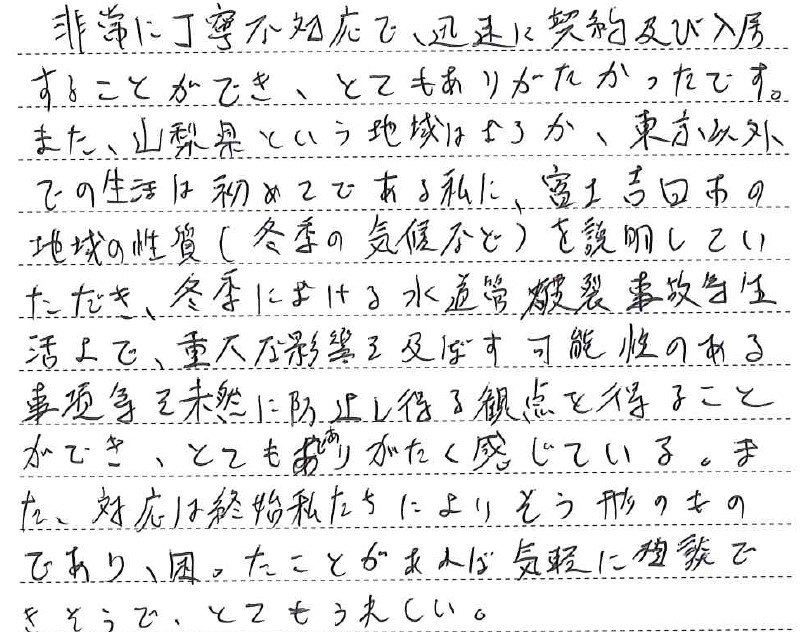 非常に丁寧な対応で、迅速に契約及び入居
することができ、とてもありがたかったです。
また、山梨県という地域はおろか、東京以外
での生活は初めてである私に、富士吉田市の
地域の性質(冬季の気候など)を説明してい
ただき、冬季における水道管破裂事故等生
活上で、重大な影響を及ぼす可能性のある
事項等を未然に防止し得る観点を得ること
ができ、とてもありがたく感じている。ま
た、対応は終始私たちによりそう形のもの
であり、困ったことがあれば気軽に相談で
きそうで、とてもうれしい。